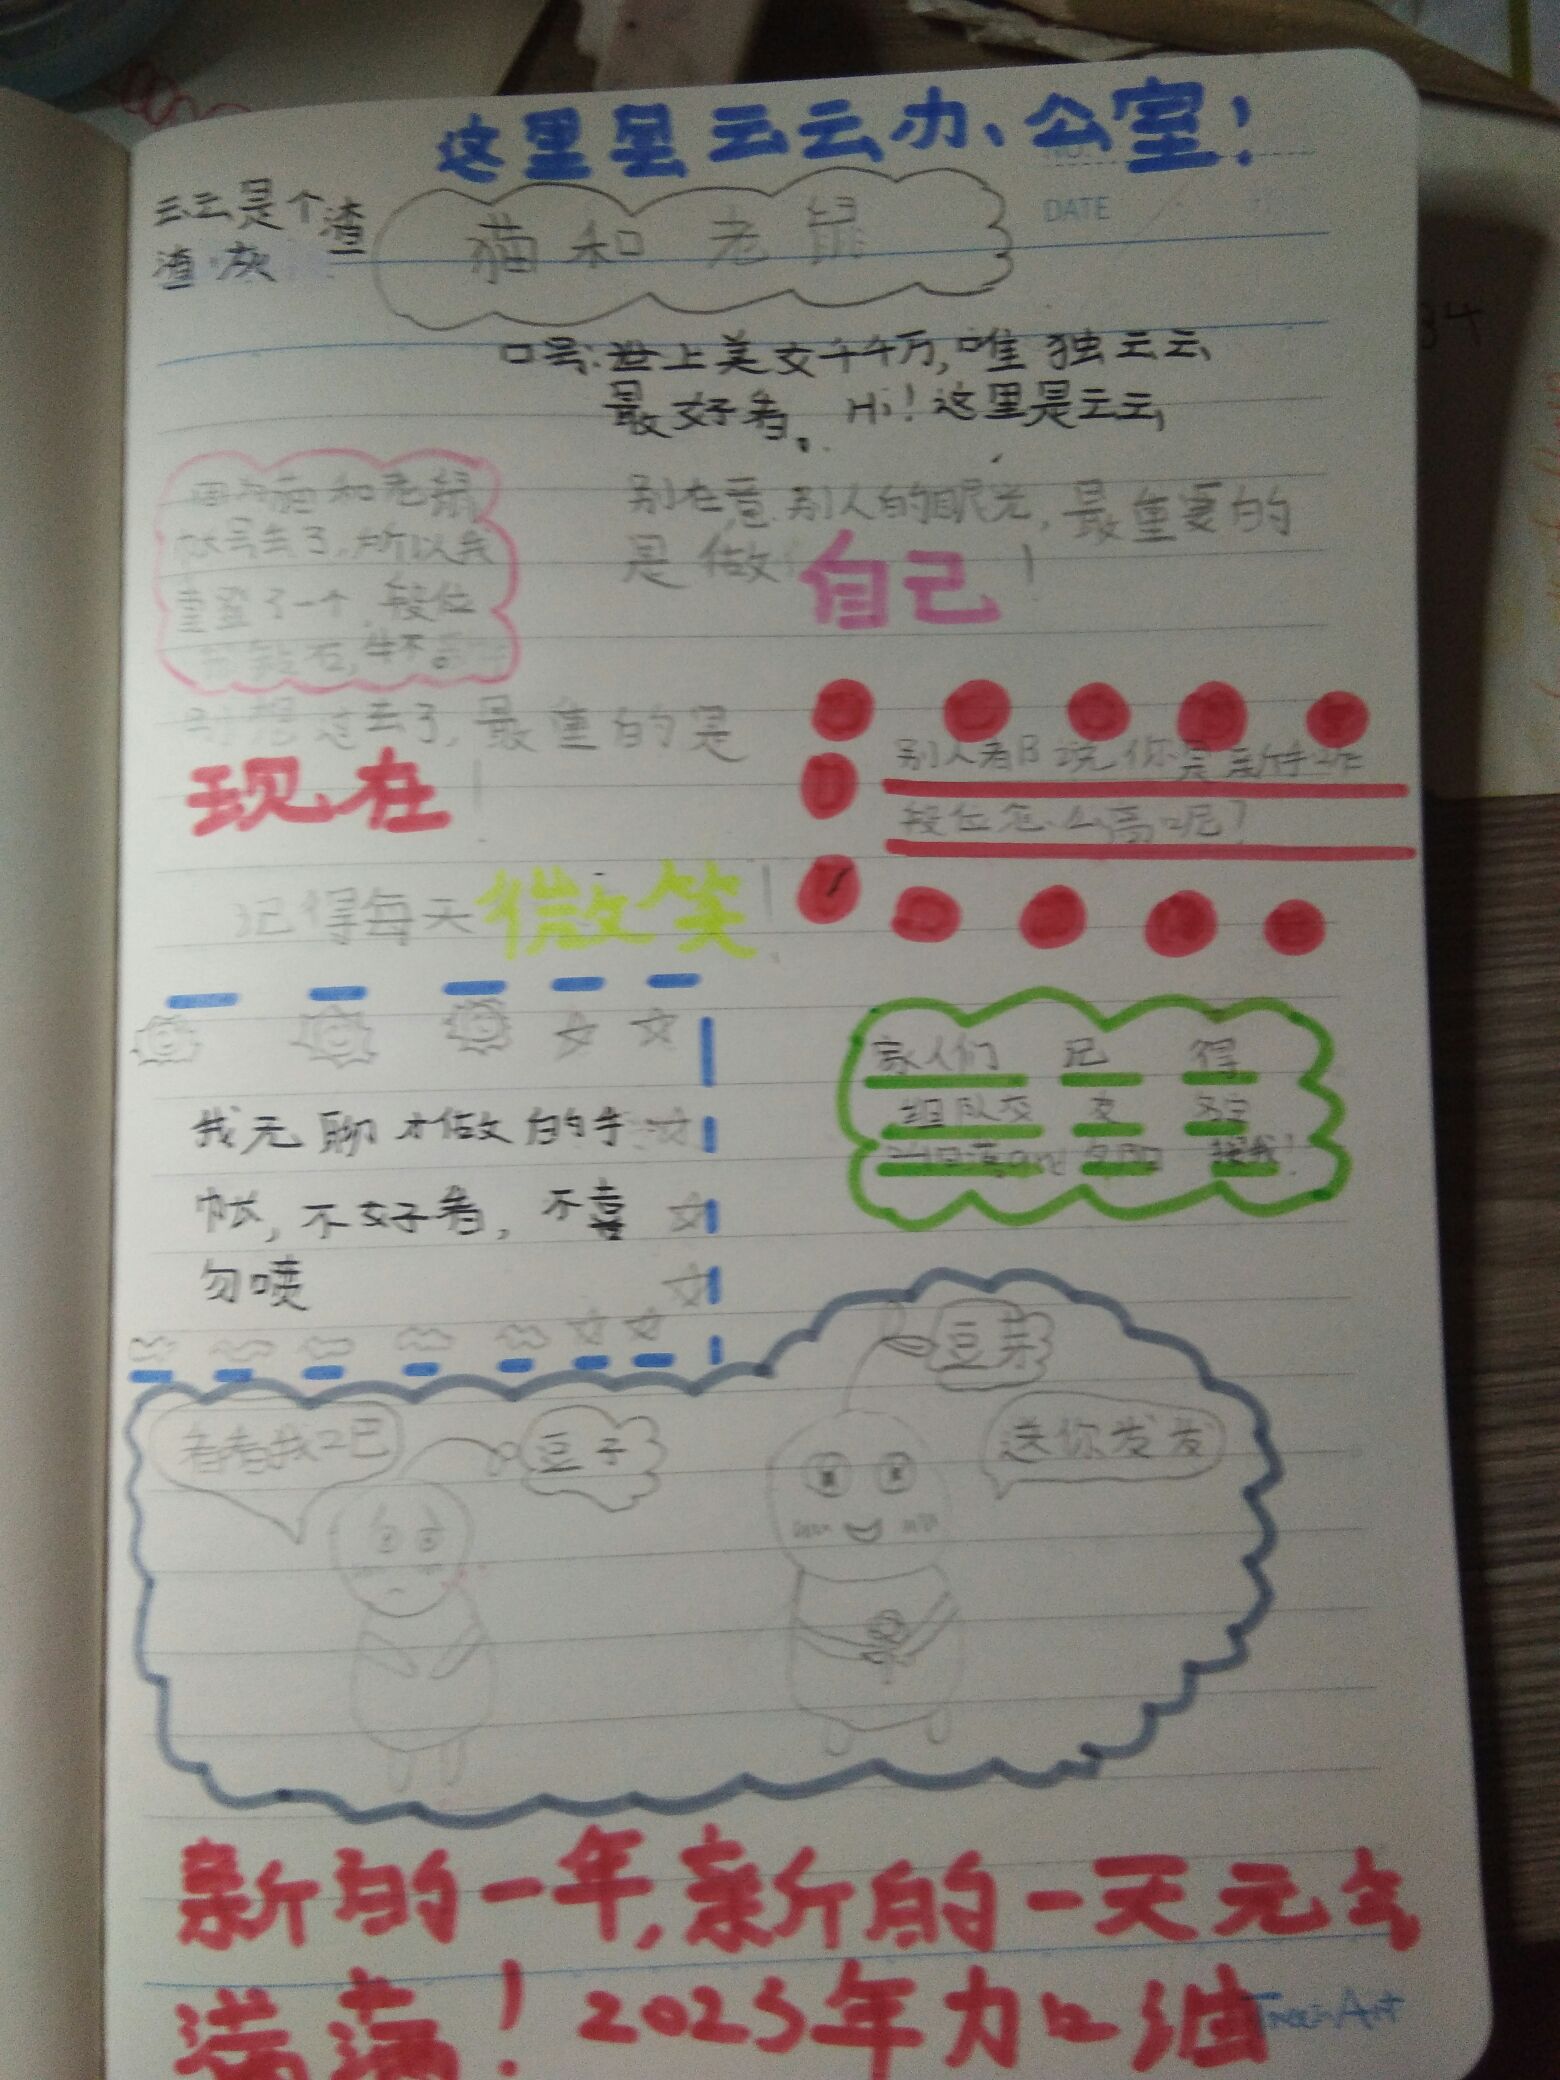 这里是云云办公室！
云云是个渣
渣灰
DATE
猫和老鼠
口号:世上美女千千万,唯独云云
最好看。Hi！这里是云云
因为猫和老鼠
帐号丢了,所以我
重登了一个,段位
钻石,
别在意别人的眼光,最重要的
是做自己！
别想过去了,最重的是
现在！
别人都说你是新手
段位怎么高呢？
记得每天微笑！
家人们 记 得
组队
我无聊才做的手
帐,不好看,不喜
勿喷
豆芽
看看我吧
豆子
送你发发
新的一年,新的一天元气
满满！2023年加油